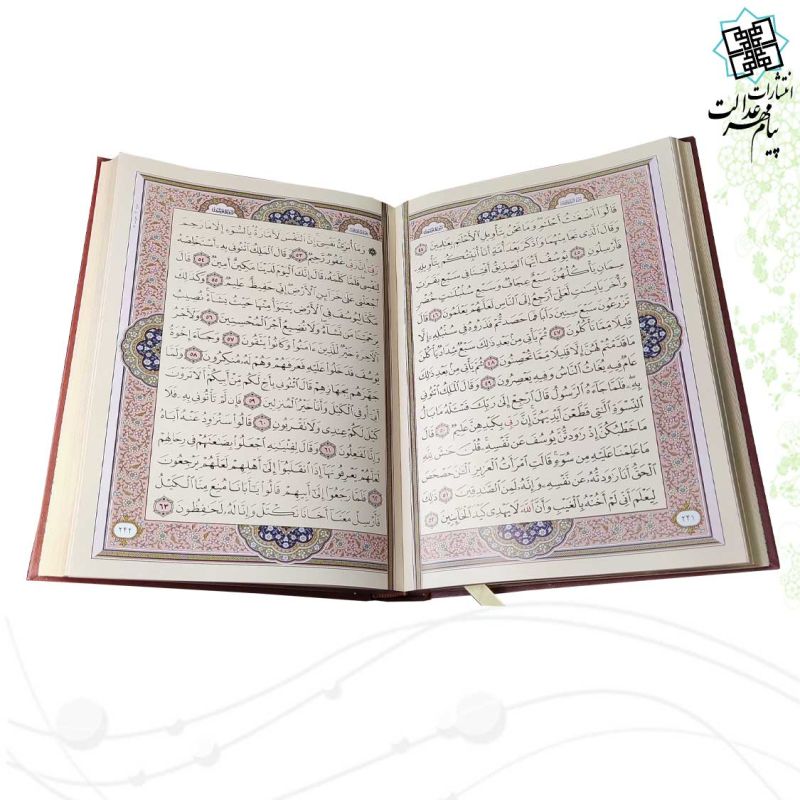 انتشارات
پیام مهر عدالت
قَالُوٓا۟ أَضْغَٰثُ أَحْلَٰمٍ وَمَا نَحْنُ بِتَأْوِيلِ ٱلْأَحْلَٰمِ بِعَٰلِمِينَ ٤٤
وَقَالَ ٱلَّذِى نَجَا مِنْهُمَا وَٱدَّكَرَ بَعْدَ أُمَّةٍ أَنَا۠ أُنَبِّئُكُم بِتَأْوِيلِهِۦ
فَأَرْسِلُونِ ٤٥ يُوسُفُ أَيُّهَا ٱلصِّدِّيقُ أَفْتِنَا فِى سَبْعِ بَقَرَٰتٍ
سِمَانٍ يَأْكُلُهُنَّ سَبْعٌ عِجَافٌ وَسَبْعِ سُنۢبُلَٰتٍ خُضْرٍ
وَأُخَرَ يَابِسَٰتٍ لَّعَلِّىٓ أَرْجِعُ إِلَى ٱلنَّاسِ لَعَلَّهُمْ يَعْلَمُونَ ٤٦ قَالَ
تَزْرَعُونَ سَبْعَ سِنِينَ دَأَبًا فَمَا حَصَدتُّمْ فَذَرُوهُ فِى سُنۢبُلِهِۦٓ إِلَّا
قَلِيلًا مِّمَّا تَأْكُلُونَ ٤٧ ثُمَّ يَأْتِى مِنۢ بَعْدِ ذَٰلِكَ سَبْعٌ شِدَادٌ يَأْكُلْنَ
مَا قَدَّمْتُمْ لَهُنَّ إِلَّا قَلِيلًا مِّمَّا تُحْصِنُونَ ٤٨ ثُمَّ يَأْتِى مِنۢ بَعْدِ ذَٰلِكَ
عَامٌ فِيهِ يُغَاثُ ٱلنَّاسُ وَفِيهِ يَعْصِرُونَ ٤٩ وَقَالَ ٱلْمَلِكُ ٱئْتُونِى
بِهِۦ فَلَمَّا جَآءَهُ ٱلرَّسُولُ قَالَ ٱرْجِعْ إِلَىٰ رَبِّكَ فَسْـَٔلْهُ مَا بَالُ
ٱلنِّسْوَةِ ٱلَّٰتِى قَطَّعْنَ أَيْدِيَهُنَّ إِنَّ رَبِّى بِكَيْدِهِنَّ عَلِيمٌ ٥٠ قَالَ
مَا خَطْبُكُنَّ إِذْ رَٰوَدتُّنَّ يُوسُفَ عَن نَّفْسِهِۦ قُلْنَ حَٰشَ لِلَّهِ
مَا عَلِمْنَا عَلَيْهِ مِن سُوٓءٍ قَالَتِ ٱمْرَأَتُ ٱلْعَزِيزِ ٱلْـَٰٔنَ حَصْحَصَ
ٱلْحَقُّ أَنَا۠ رَٰوَدتُّهُۥ عَن نَّفْسِهِۦ وَإِنَّهُۥ لَمِنَ ٱلصَّٰدِقِينَ ٥١ ذَٰلِكَ
لِيَعْلَمَ أَنِّى لَمْ أَخُنْهُ بِٱلْغَيْبِ وَأَنَّ ٱللَّهَ لَا يَهْدِى كَيْدَ ٱلْخَآئِنِينَ ٥٢
٢٤١
وَمَآ أُبَرِّئُ نَفْسِىٓ إِنَّ ٱلنَّفْسَ لَأَمَّارَةٌۢ بِٱلسُّوٓءِ إِلَّا مَا رَحِمَ
رَبِّىٓ إِنَّ رَبِّى غَفُورٌ رَّحِيمٌ ٥٣ وَقَالَ ٱلْمَلِكُ ٱئْتُونِى بِهِۦٓ أَسْتَخْلِصْهُ
لِنَفْسِى فَلَمَّا كَلَّمَهُۥ قَالَ إِنَّكَ ٱلْيَوْمَ لَدَيْنَا مَكِينٌ أَمِينٌ ٥٤ قَالَ
ٱجْعَلْنِى عَلَىٰ خَزَآئِنِ ٱلْأَرْضِ إِنِّى حَفِيظٌ عَلِيمٌ ٥٥ وَكَذَٰلِكَ
مَكَّنَّا لِيُوسُفَ فِى ٱلْأَرْضِ يَتَبَوَّأُ مِنْهَا حَيْثُ يَشَآءُ نُصِيبُ
بِرَحْمَتِنَا مَن نَّشَآءُ وَلَا نُضِيعُ أَجْرَ ٱلْمُحْسِنِينَ ٥٦ وَلَأَجْرُ
ٱلْءَاخِرَةِ خَيْرٌ لِّلَّذِينَ ءَامَنُوا۟ وَكَانُوا۟ يَتَّقُونَ ٥٧ وَجَآءَ إِخْوَةُ
يُوسُفَ فَدَخَلُوا۟ عَلَيْهِ فَعَرَفَهُمْ وَهُمْ لَهُۥ مُنكِرُونَ ٥٨ وَلَمَّا
جَهَّزَهُم بِجَهَازِهِمْ قَالَ ٱئْتُونِى بِأَخٍ لَّكُم مِّنْ أَبِيكُمْ أَلَا تَرَوْنَ
أَنِّىٓ أُوفِى ٱلْكَيْلَ وَأَنَا۠ خَيْرُ ٱلْمُنزِلِينَ ٥٩ فَإِن لَّمْ تَأْتُونِى بِهِۦ فَلَا
كَيْلَ لَكُمْ عِندِى وَلَا تَقْرَبُونِ ٦٠ قَالُوا۟ سَنُرَٰوِدُ عَنْهُ أَبَاهُ
وَإِنَّا لَفَٰعِلُونَ ٦١ وَقَالَ لِفِتْيَٰنِهِ ٱجْعَلُوا۟ بِضَٰعَتَهُمْ فِى رِحَالِهِمْ
لَعَلَّهُمْ يَعْرِفُونَهَآ إِذَا ٱنقَلَبُوٓا۟ إِلَىٰٓ أَهْلِهِمْ لَعَلَّهُمْ يَرْجِعُونَ
٦٢ فَلَمَّا رَجَعُوٓا۟ إِلَىٰٓ أَبِيهِمْ قَالُوا۟ يَٰٓأَبَانَا مُنِعَ مِنَّا ٱلْكَيْلُ
فَأَرْسِلْ مَعَنَآ أَخَانَا نَكْتَلْ وَإِنَّا لَهُۥ لَحَٰفِظُونَ ٦٣
٢٤٢